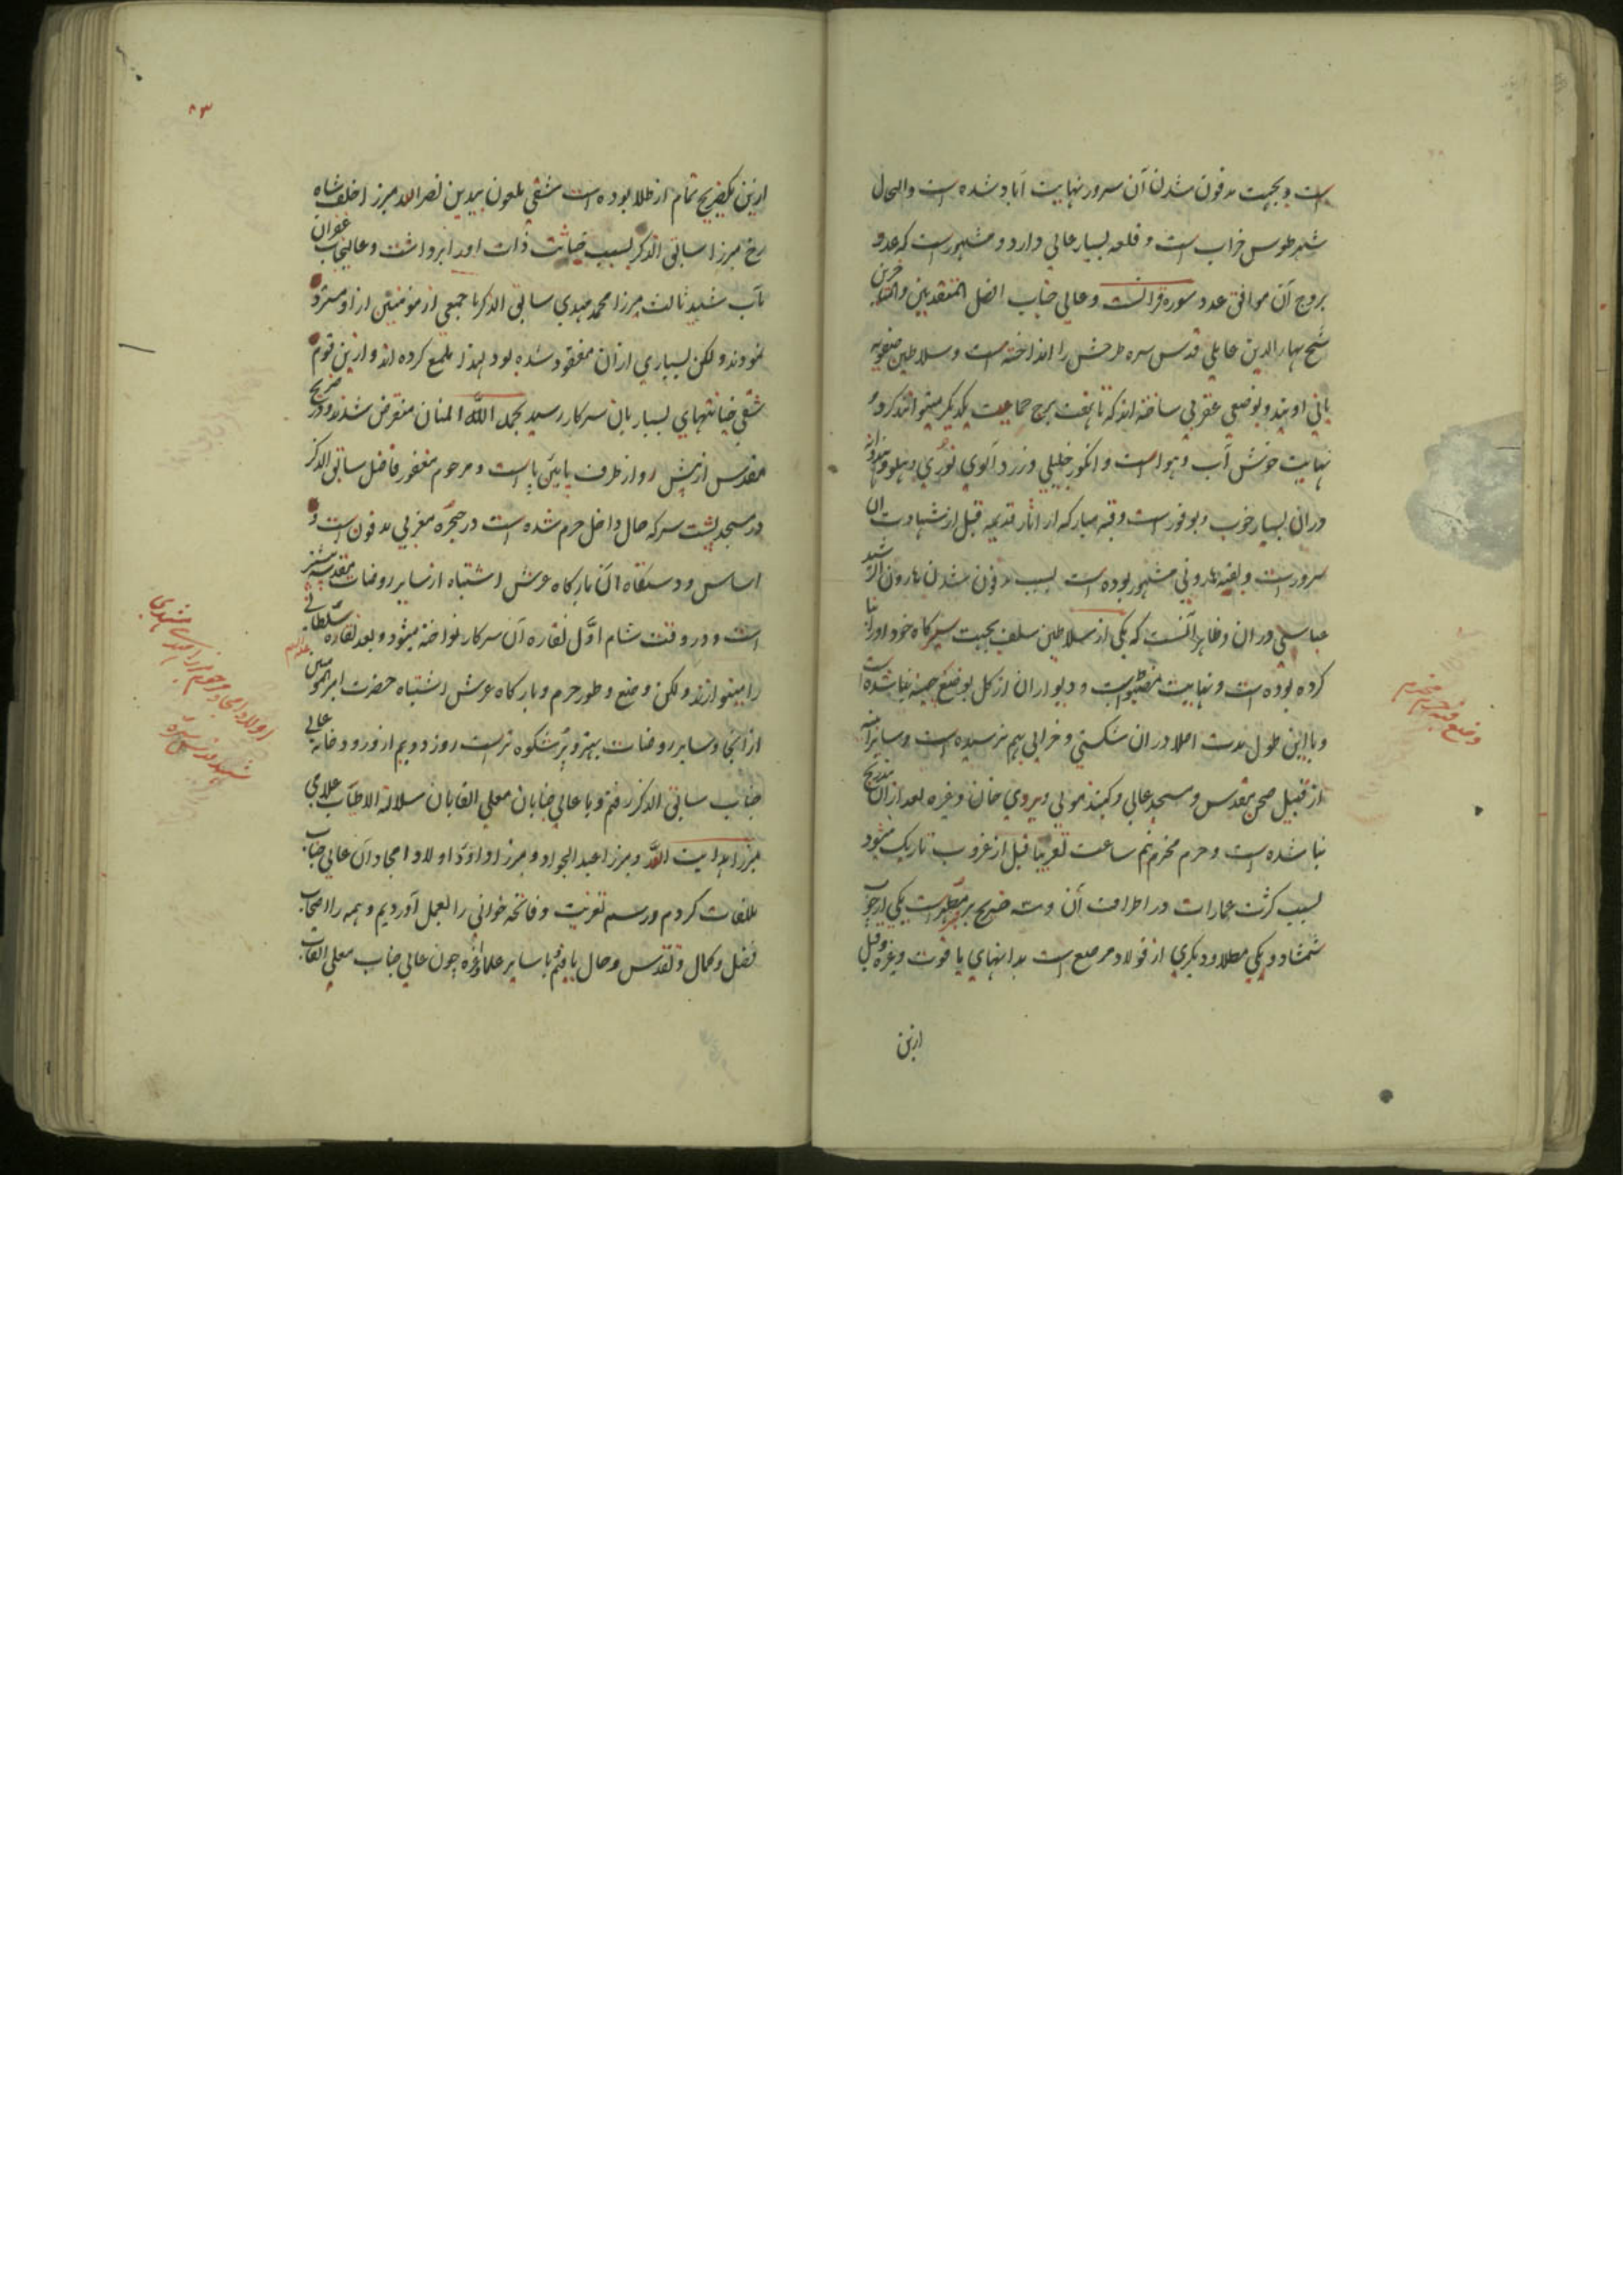 است و بجهت مدفون شدن آن سرور نهایت آباد شده است والحال
شهر طوس خراب است و قلعه بسیار عالی دارد و مشهور است که عدد
بروج آن موافق عدد سوره قرآنست و عالی جناب افضل المتقدمین والمتاخرین
شیخ بهاء الدین عاملی قدس سره طرحش را انداخته است و سلاطین صفویه
بانی اویند و بوضعی عقربی ساخته اند که تا هفت برج حمایت یکدیگر میتوانند کرد و
نهایت خوش آب و هواست و انگور خلیلی و زرد آلوی نوری و هلو و هندوانه
در ان بسیار خوب و بوفور است و قبه مبارکه از اثار قدیمه قبل از شهادت آن
سرور است و بقبه هارونی مشهور بوده است بسبب مدفون شدن هارون الرشید
عباسی در ان و ظاهرا آنست که یکی از سلاطین سلف بجهت سیرگاه خود او را بنا
کرده بوده است و نهایت مضبوطست و دیوار ان از کل بوضع چینه بنا شده است
و با این طول مدت اصلا در ان شکستی و خرابی بهم نرسیده است و سایر ابنیه
از قبیل صحن مقدس و مسجد عالی و کنبذ مولی ویردی خان و غیره بعد از ان بتدریج
بنا شده است و حرم محترم نیم ساعت تقریبا قبل از غروب تاریک میشود
بسبب کثرت عمارات در اطراف آن و سه ضریح بر مرقد مطهر است یکی از چوب
شمشاد و یکی مطلا و دیکری از فولاد مرصع است بدانهای یاقوت و غیره و قبل
ازین
وضع قبه و حرم محترم
۸۳
ازین یکضریح تمام از طلا بوده است شقی ملعون بیدین نصرالله میرزا خلف شاه
رخ میرزا سابق الذکر بسبب خباثت ذات او را برداشت و عالیجناب غفران
مآب شهید ثالث میرزا محمد مهدی سابق الذکر با جمعی از مومنین از او مسترد
نمودند ولکن بسیاری از ان مفقود شده بود لهذا ملمع کرده اند و ازین قوم
شقی خیانتهای بسیار بان سرکار رسید بحمد الله المنان منقرض شدند و در ضریح
مقدس از پیش رو از طرف پایین پا است و مرحوم مغفور فاضل سابق الذکر
در مسجد پشت سر که حال داخل حرم شده است در حجره مغربی مدفون است و
اساس و دستگاه ان بارکاه عرش اشتباه از سایر روضات مقدسه بیشتر
است و در وقت شام اول نقاره آن سرکار نواخته میشود و بعد نقاره سلطانی
را مینوازند ولکن وضع و طور حرم و بارکاه عرش اشتباه حضرت امیرالمومنین علیه السلام
از انجا و سایر روضات بهتر و پر شکوه تر است روز دویم از ورود بخانه عالی
جناب سابق الذکر رفتم و با عالی جنابان معلی القابان سلالة الاطیاب علامی
میرزا هدایت الله و میرزا عبدالجواد و میرزا داود اولاد امجاد آن عالی جناب
ملاقات کردم و رسم تعزیت و فاتحه خوانی را بعمل آوردیم و همه را اصحاب
فضل و کمال و تقدس و حال یافتم و با سایر علما و غیره چون عالی جناب معلی القاب
اولاد امجاد مرحوم میرزا مهدی مشهدی
شهید قدس سره